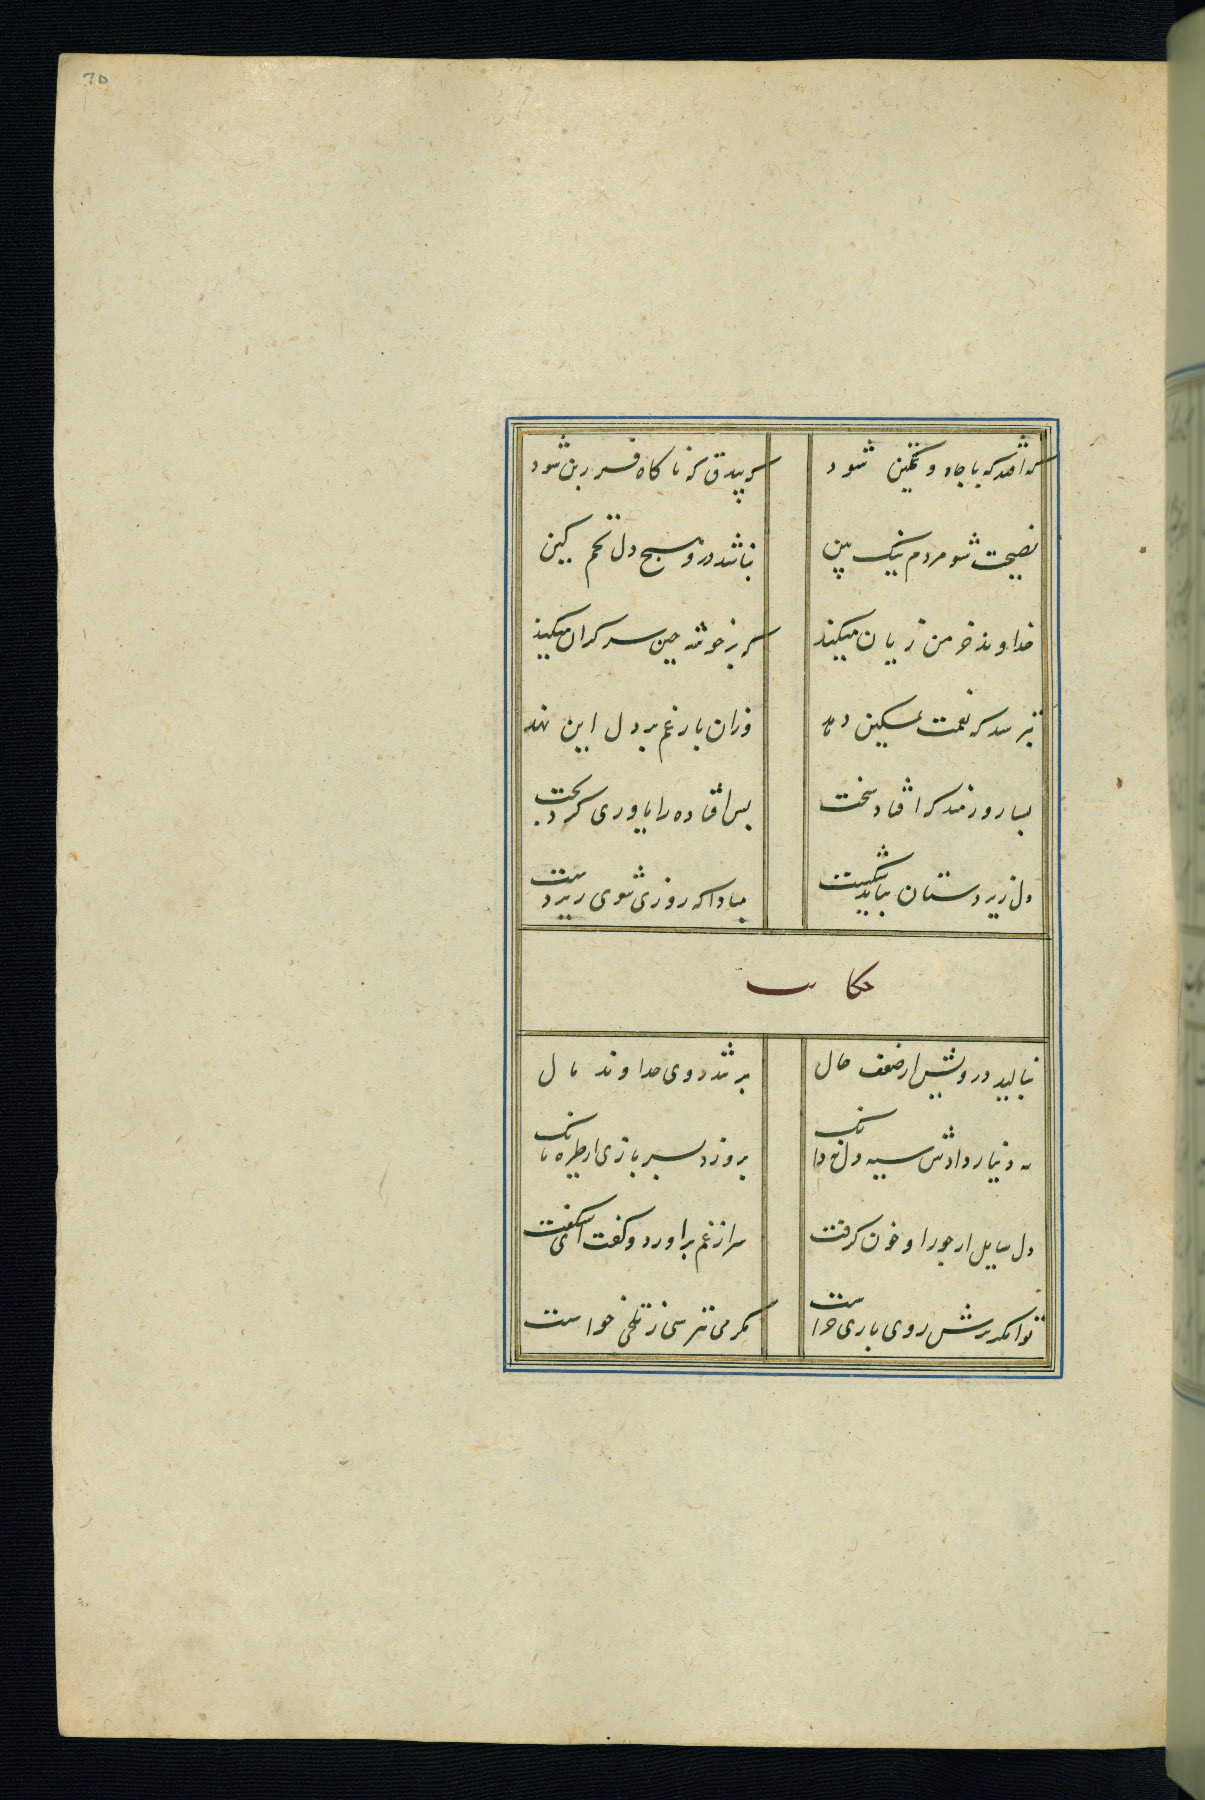 که افتد که با جاه و تمکین شود
که بیدق که ناکاه فرزین شود
نصیحت شنو مردم نیک بین
نباشد در و هیچ دل تخم کین
خداوند خرمن زیان میکند
که بر خوشه چین سر کران میکند
نترسد که نعمت بمسکین دهد
وزان بار غم بر دل این نهد
بسا زورمند که افتاد سخت
بس افتاده را یاوری کرد بخت
دل زیردستان نباید شکست
مبادا که روزی شوی زیردست
حکایت
بنالید درویش از ضعف حال
بر تند روی خداوند مال
نه دینار دادش سیه دل نه دانک
برو زد بسر باری از طیره بانک
دل سایل از جور او خون کرفت
سر از غم براورد و کفت ای شکفت
توانکر ترش روی باری چراست
مکر می نترسی ز تلخی خواست